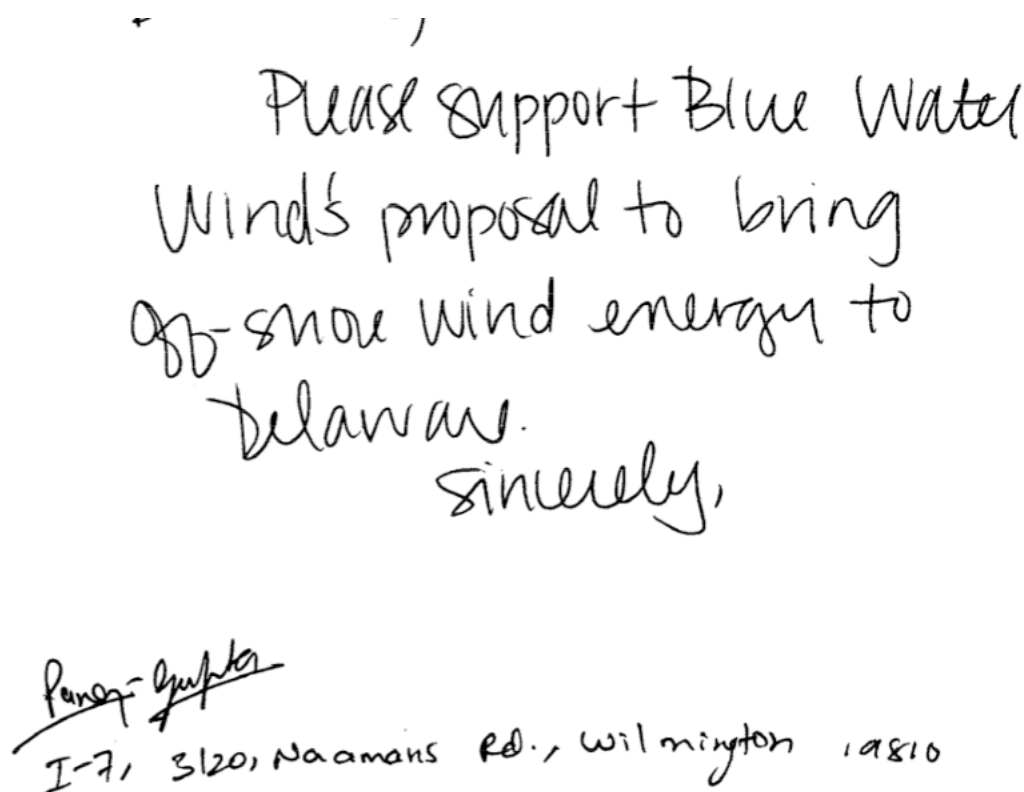 Please support Blue Water
Wind's proposal to bring
off-shore wind energy to
Delaware.
sincerely,
Gupta
I-7, 3120, Naamans Rd., Wilmington 19810